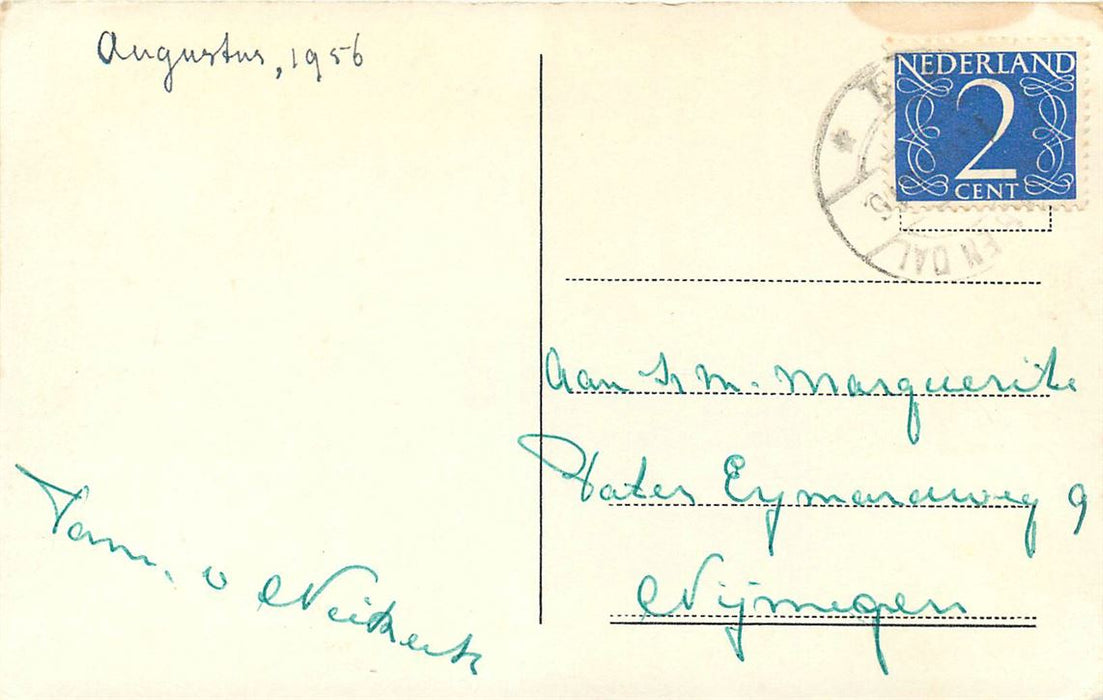 Augustus, 1956
NEDERLAND
2
CENT
ENDAAL
Aan Zr M. Marguerite
Pater Eymardweg 9
Nijmegen
Fam. v